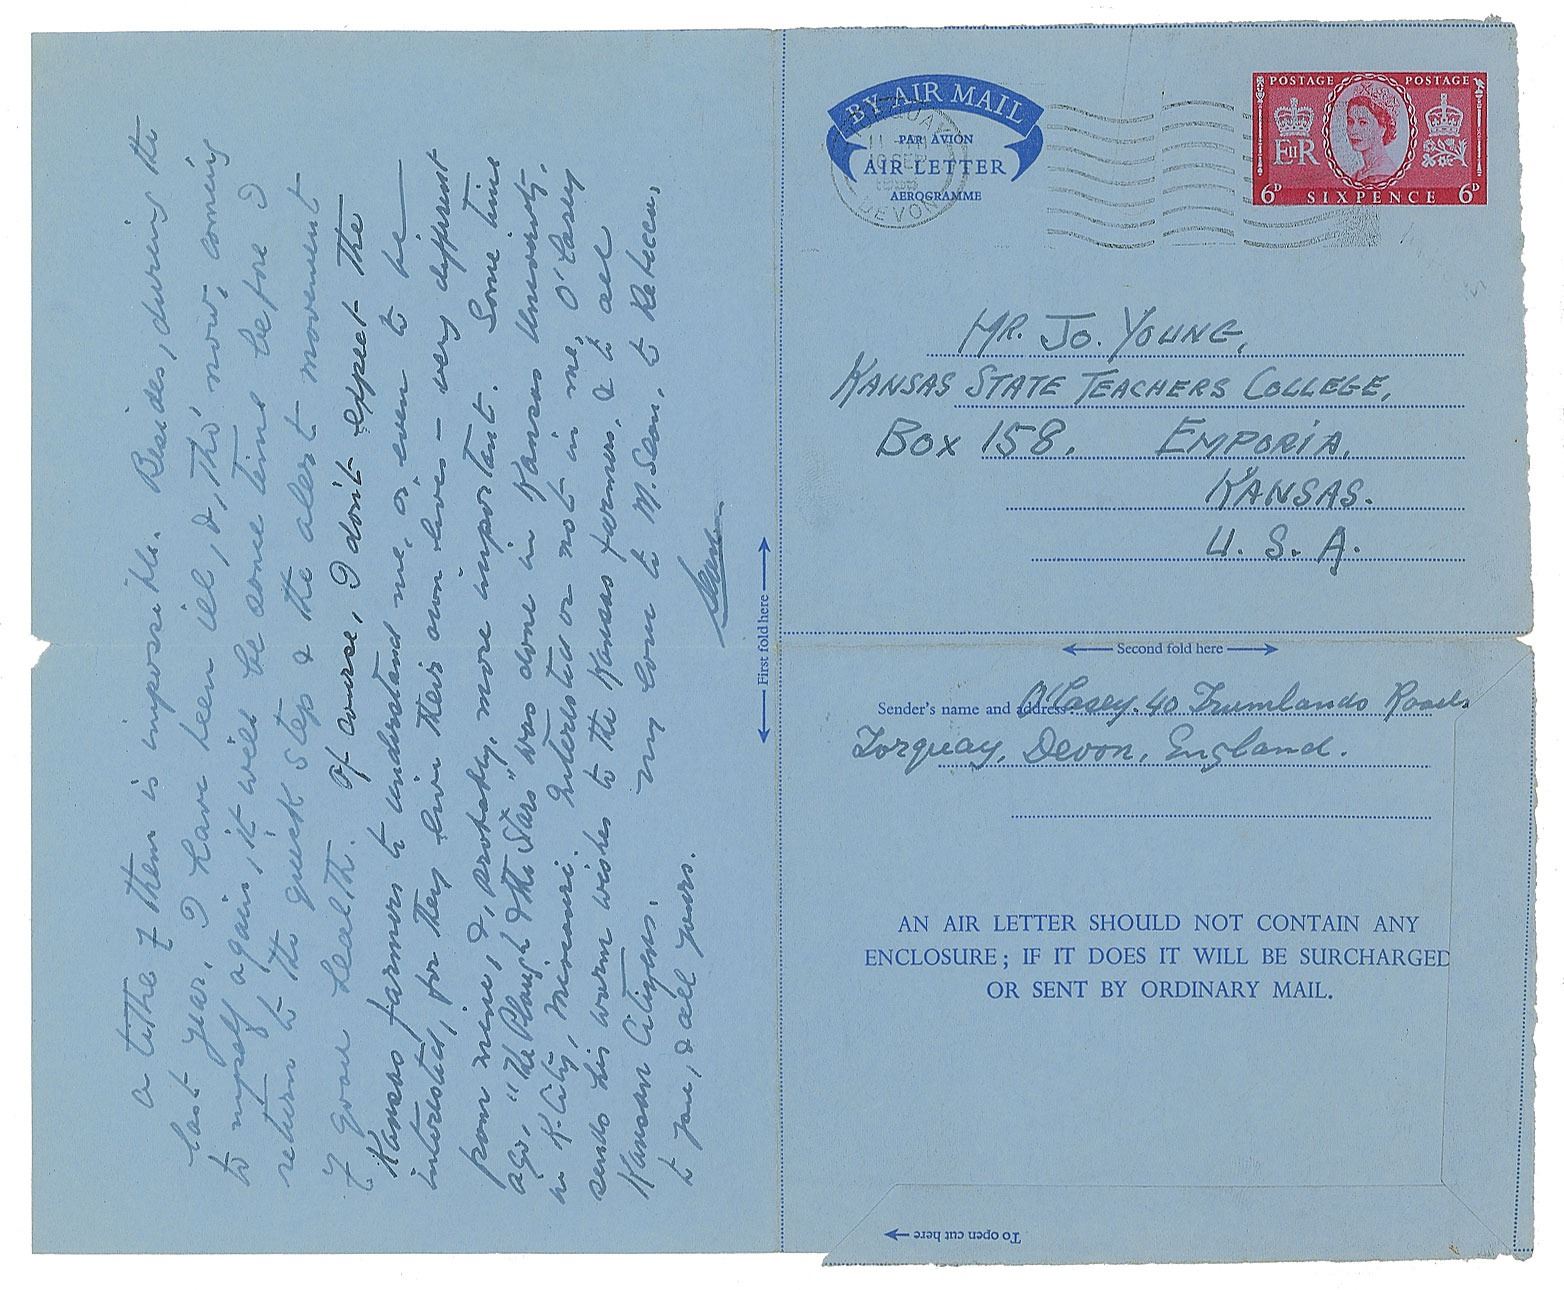 a tithe of them is impossible. Besides, during the
last year, I have been ill, &, tho' now, coming
to myself again, it will be some time before I
return to the quick step & the alert movement
of good health. Of course, I don't expect the
Kansas farmers to understand me, or, even to be
interested, for they live their own lives — very different
from mine, &, probably, more important. Some time
ago, "The Plough & the Stars" was done in Kansas University,
in K. City, Missouri. Interested or not in me, O'Casey
sends his warm wishes to the Kansas farmers, & to all
Kansan Citizens. my love to M. Sean, to Rebecca,
to Jane, & all yours.
Sean
First fold here
BY AIR MAIL
PAR AVION
AIR LETTER
AEROGRAMME
TORQUAY
DEVON
POSTAGE POSTAGE
E II R
6D SIXPENCE 6D
MR. JO. YOUNG,
KANSAS STATE TEACHERS COLLEGE,
BOX 158, EMPORIA,
KANSAS.
U. S. A.
Second fold here
Sender's name and address: O'Casey. 40 Trumlands Road,
Torquay, Devon, England.
AN AIR LETTER SHOULD NOT CONTAIN ANY
ENCLOSURE; IF IT DOES IT WILL BE SURCHARGED
OR SENT BY ORDINARY MAIL.
To open cut here